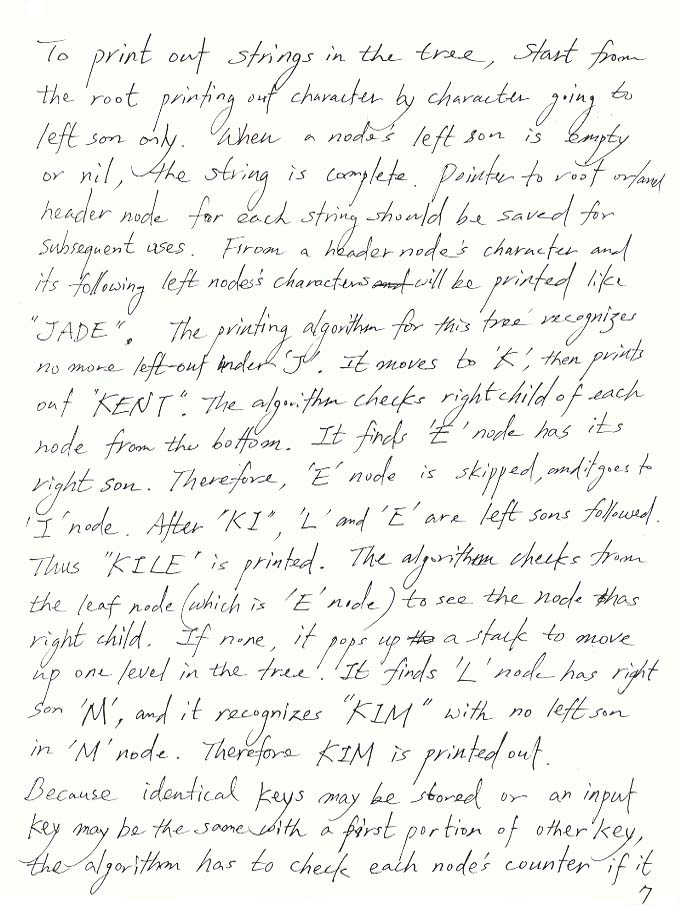 To print out strings in the tree, start from
the root printing out character by character going to
left son only. When a node's left son is empty
or nil, the string is complete. Pointer to root or/and
header node for each string should be saved for
subsequent uses. Firom a header node's character and
its following left nodes's characters and will be printed like
"JADE". The printing algorithm for this tree recognizes
no more left-out under 'J'. It moves to 'K', then prints
out "KENT". The algorithm checks right child of each
node from the bottom. It finds 'E' node has its
right son. Therefore, 'E' node is skipped, and it goes to
'I' node. After "KI", 'L' and 'E' are left sons followed.
Thus "KILE" is printed. The algorithm checks from
the leaf node (which is 'E' node) to see the node has
right child. If none, it pops up the a stack to move
up one level in the tree. It finds 'L' node has right
son 'M', and it recognizes "KIM" with no left son
in 'M' node. Therefore KIM is printed out.
Because identical keys may be stored or an input
key may be the same with a first portion of other key,
the algorithm has to check each node's counter if it
7